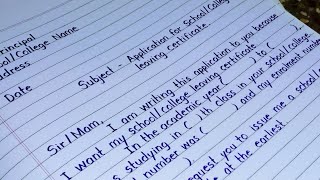 Principal
School/College Name
Address
Date
Subject - Application for School/College
leaving certificate.
Sir/Mam,
I am writing this application to you because
I want my school/college leaving certificate
In the academic year ( ) to ( ),
studying in ( )th class in your school/college
and my enrolment number
number was ( )
request you to issue me a school/
at the earliest